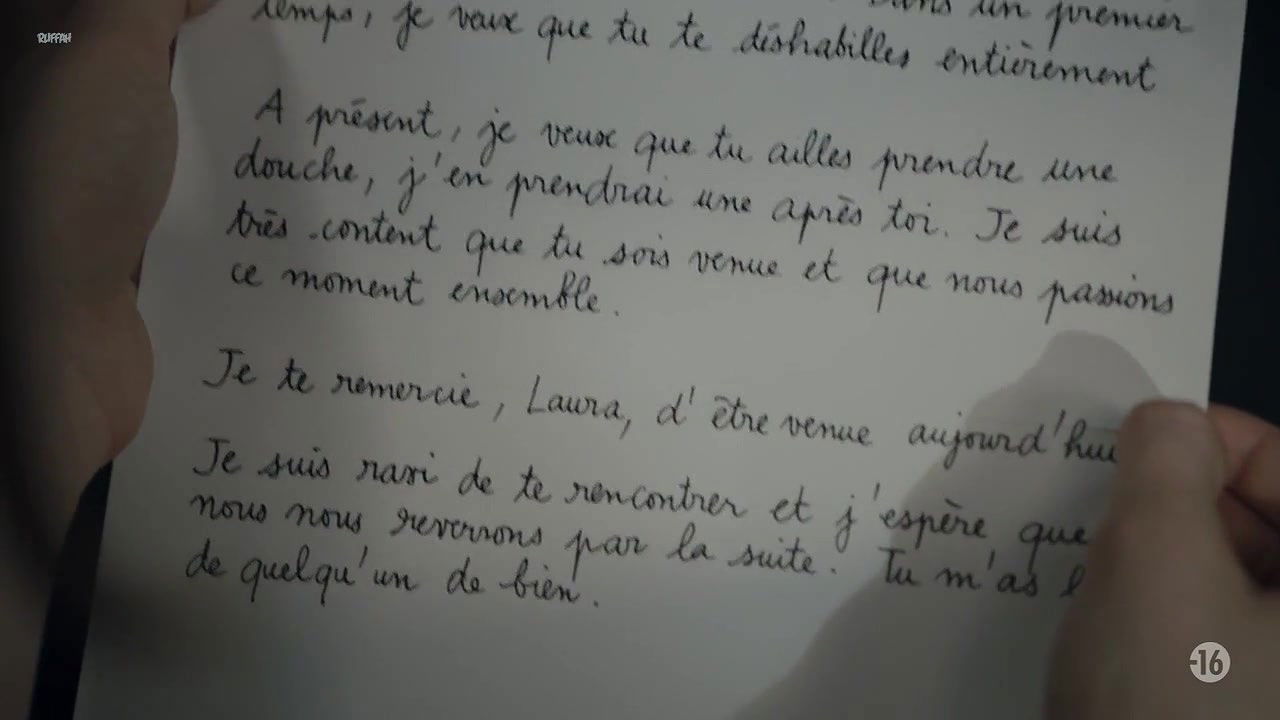 RUFFAH
Dans un premier
temps, je veux que tu te déshabilles entièrement
A présent, je veux que tu ailles prendre une
douche, j'en prendrai une après toi. Je suis
très content que tu sois venue et que nous passions
ce moment ensemble.
Je te remercie, Laura, d'être venue aujourd'hui
Je suis ravi de te rencontrer et j'espère que
nous nous reverrons par la suite. Tu m'as
de quelqu'un de bien.
-16